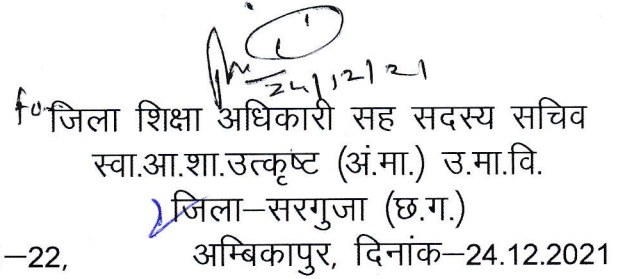 24/12/21
for जिला शिक्षा अधिकारी सह सदस्य सचिव
स्वा.आ.शा.उत्कृष्ट (अं.मा.) उ.मा.वि.
जिला–सरगुजा (छ.ग.)
–22, अम्बिकापुर, दिनांक–24.12.2021